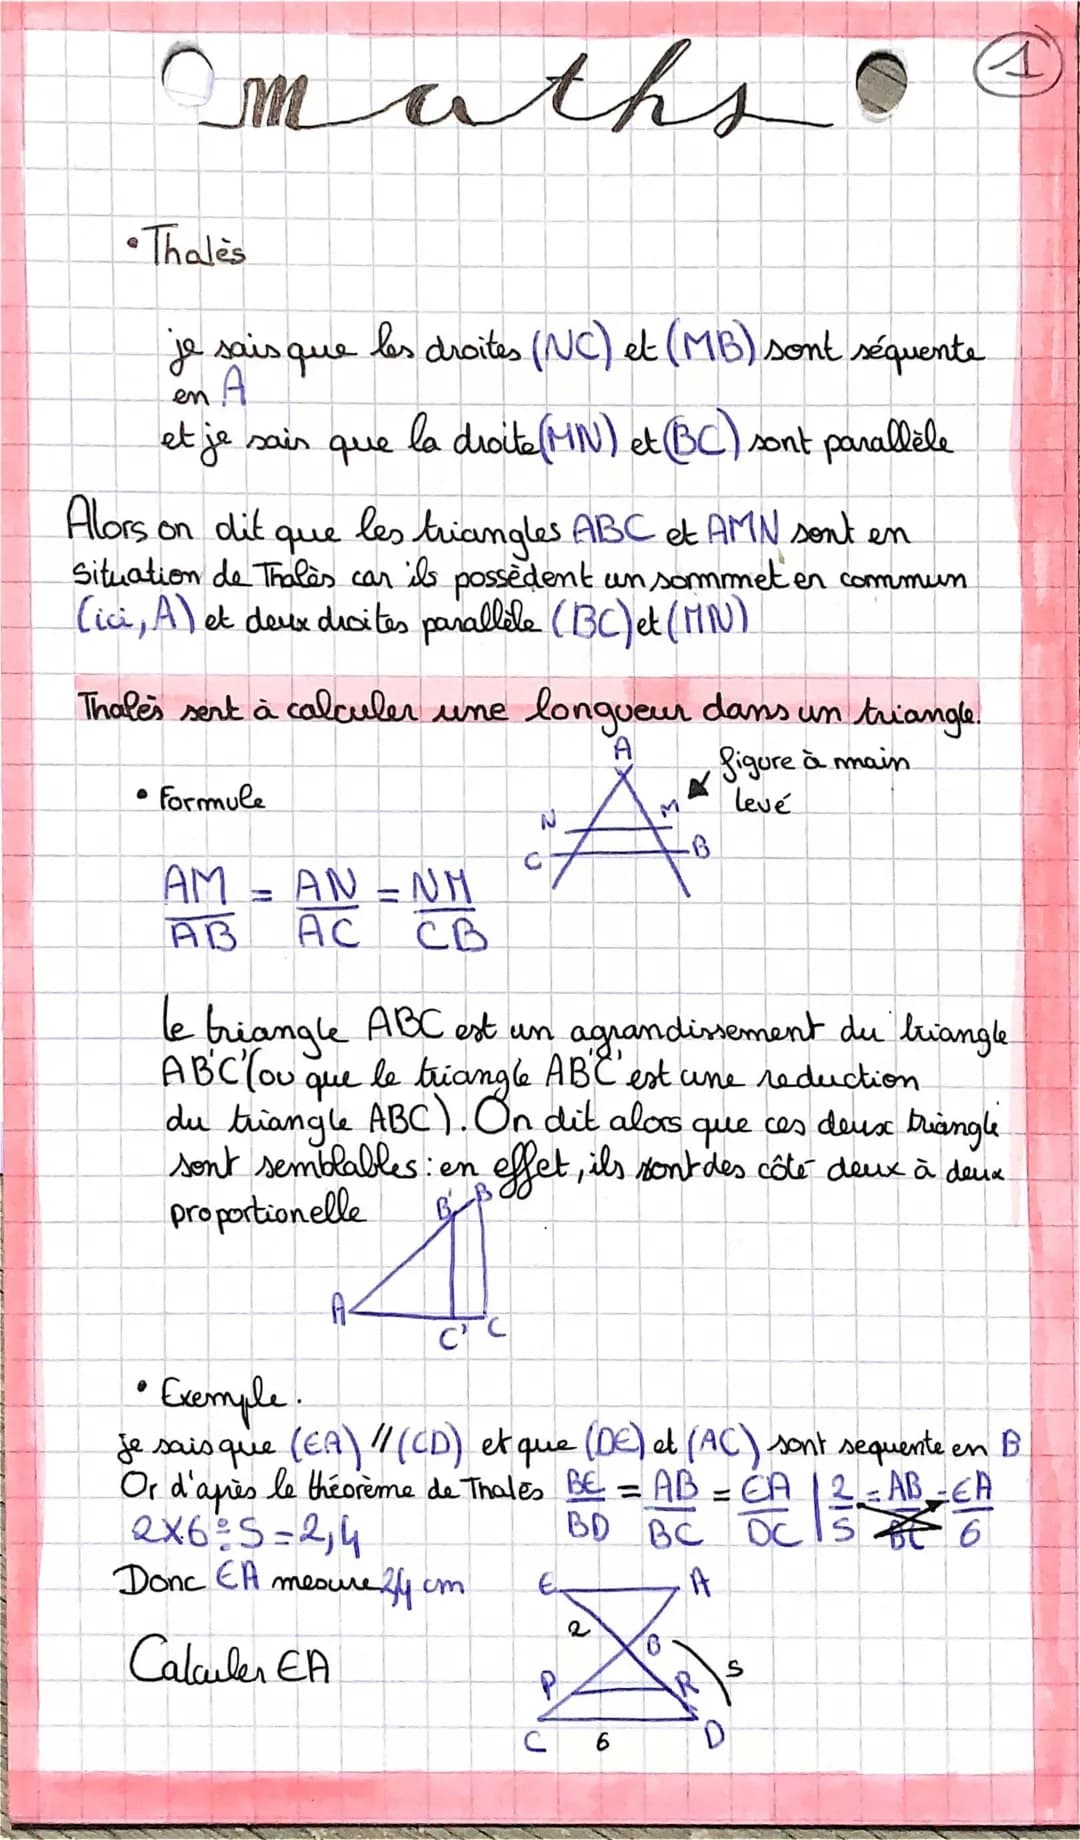 maths
1
• Thalès
je sais que les droites (NC) et (MB) sont séquente
en A
et je sais que la droite (MN) et (BC) sont parallèle
Alors on dit que les triangles ABC et AMN sont en
situation de Thalès car ils possèdent un sommmet en commun
(ici, A) et deux droites parallèle (BC) et (MN)
Thalès sert à calculer une longueur dans un triangle.
A
figure à main
levé
• Formule
N
M
C
B
AM = AN = NM
AB AC CB
le triangle ABC est un agrandissement du triangle
AB'C' (ou que le triangle AB'C' est une reduction
du triangle ABC). On dit alors que ces deux triangle
sont semblables : en effet, ils sont des côté deux à deux
proportionelle
B' B
A
C' C
• Exemple.
je sais que (EA) // (CD) et que (DE) et (AC) sont sequente en B
Or d'après le théorème de Thalès BE = AB = EA | 2 = AB = EA
BD BC DC | 5 BC 6
2×6÷5=2,4
Donc EA mesure 2,4 cm
E A
2
B
Calculer EA
5
P R
C 6 D